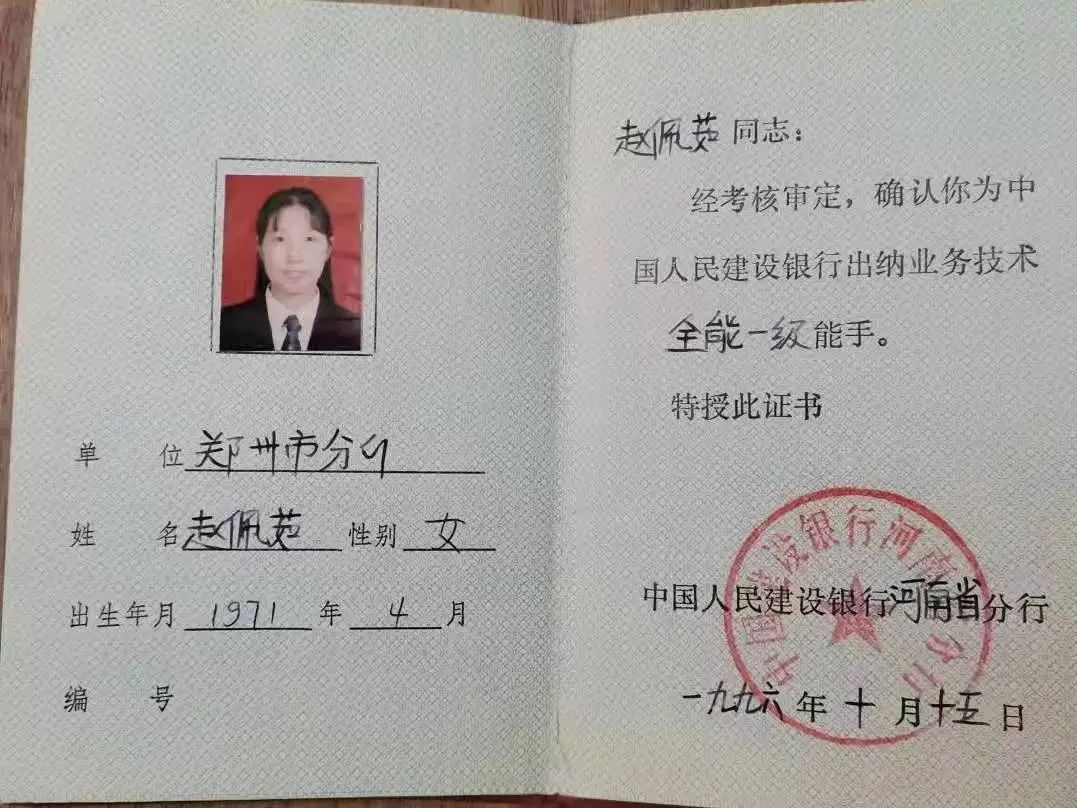 单 位 郑州市分行
姓 名 赵佩茹 性别 女
出生年月 1971 年 4 月
编 号
赵佩茹 同志：
经考核审定，确认你为中
国人民建设银行出纳业务技术
全能一级能手。
特授此证书
中国人民建设银行河南省分行
一九九六年十月十五日
中国建设银行河南省分行